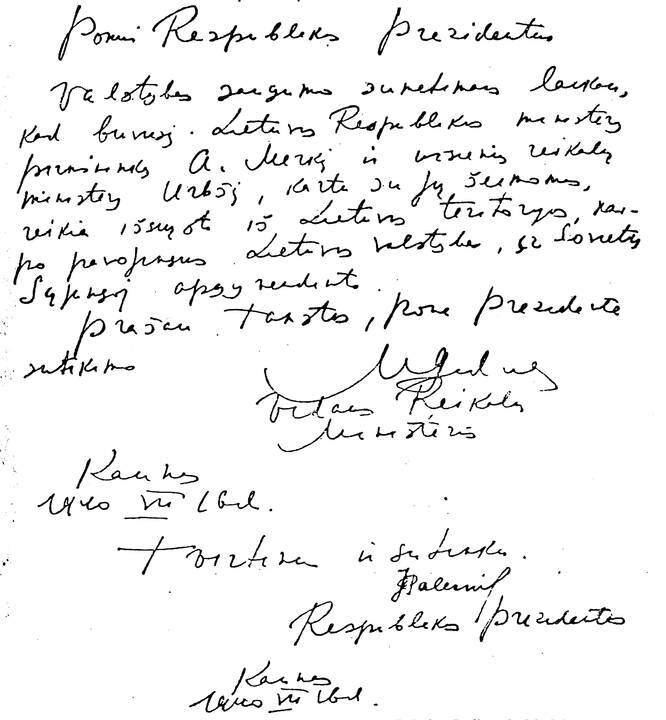 Ponui Respublikos Prezidentui
Valstybės saugumo sumetimais laikau,
kad buvusį Lietuvos Respublikos ministrą
pirmininką A. Merkį ir užsienių reikalų
ministrą Urbšį, kartu su jų šeimomis,
reikia išsiųsti iš Lietuvos teritorijos, kai-
po pavojingus Lietuvos valstybei, į Sovietų
Sąjungą apgyvendinti.
Prašau Tamstos, pone Prezidente
sutikimo
MGedvilas
Vidaus Reikalų
Ministeris
Kaunas
1940 VII 16 d.
Tvirtinu ir sutinku.
JPaleckis
Respublikos Prezidentas
Kaunas
1940 VII 16 d.